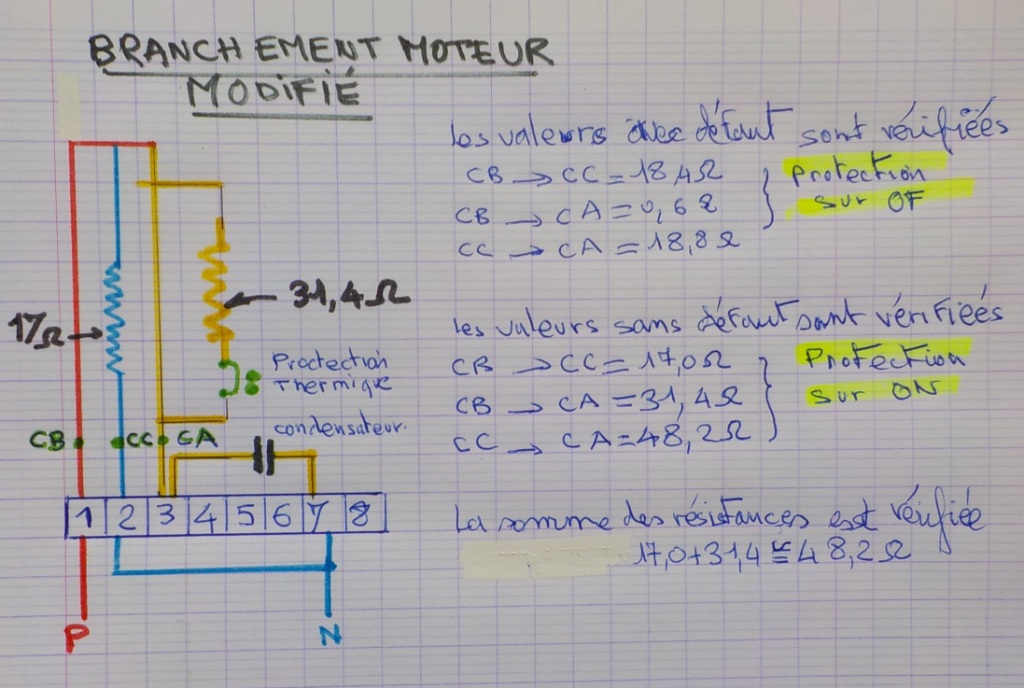 BRANCHEMENT MOTEUR
MODIFIÉ
les valeurs avec défaut sont vérifiées
CB → CC = 18,4Ω
CB → CA = 0,6Ω
CC → CA = 18,8Ω
Protection
sur OF
31,4Ω
17Ω
Proctection
Thermique
CB
CC
CA
condensateur.
les valeurs sans défaut sont vérifiées
CB → CC = 17,0Ω
CB → CA = 31,4Ω
CC → CA = 48,2Ω
Protection
sur ON
1 2 3 4 5 6 7 8
P
N
La somme des résistances est vérifiée
17,0+31,4 ≅ 48,2Ω